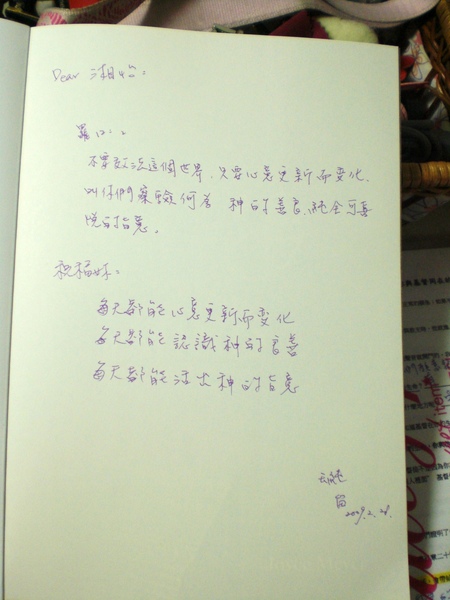 Dear 湘
羅12:2
不要效法這個世界，只要心意更新而變化，
叫你們察驗何為 神的善良、純全可喜
悅的旨意。
祝福妳：
每天都能心意更新而變化
每天都能認識神的良善
每天都能活出神的旨意
2009.2.28.